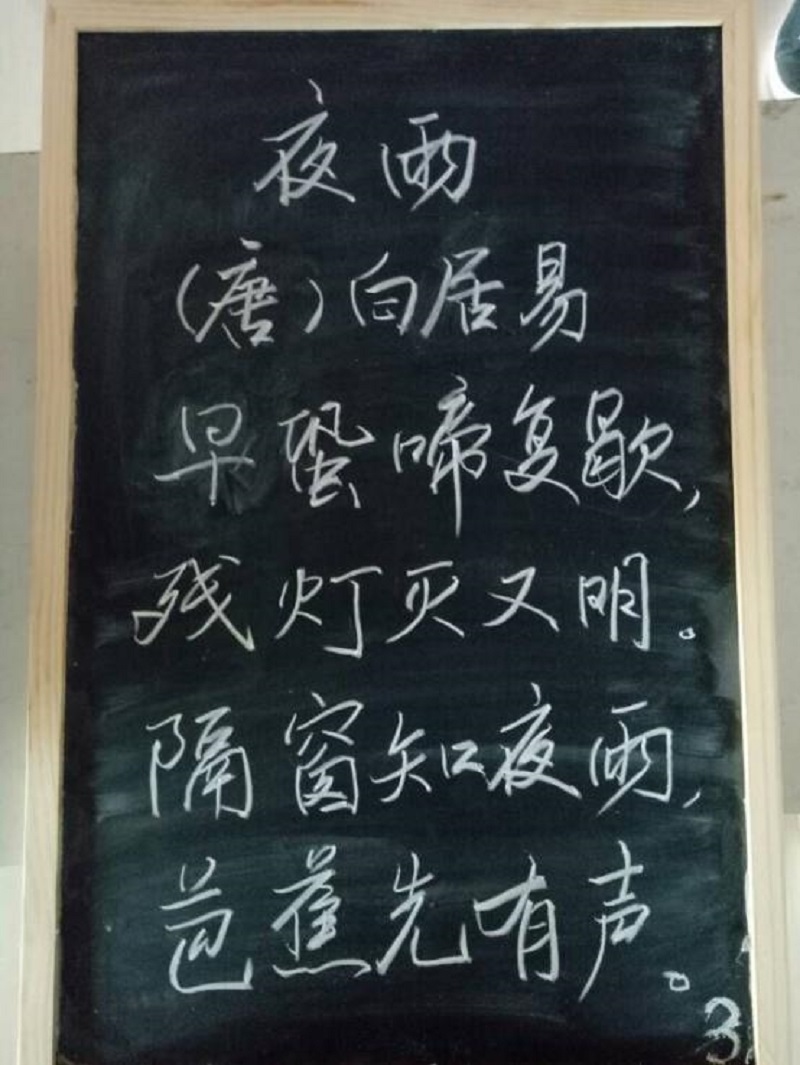 夜雨
(唐)白居易
早蛩啼复歇,
残灯灭又明。
隔窗知夜雨,
芭蕉先有声。
3